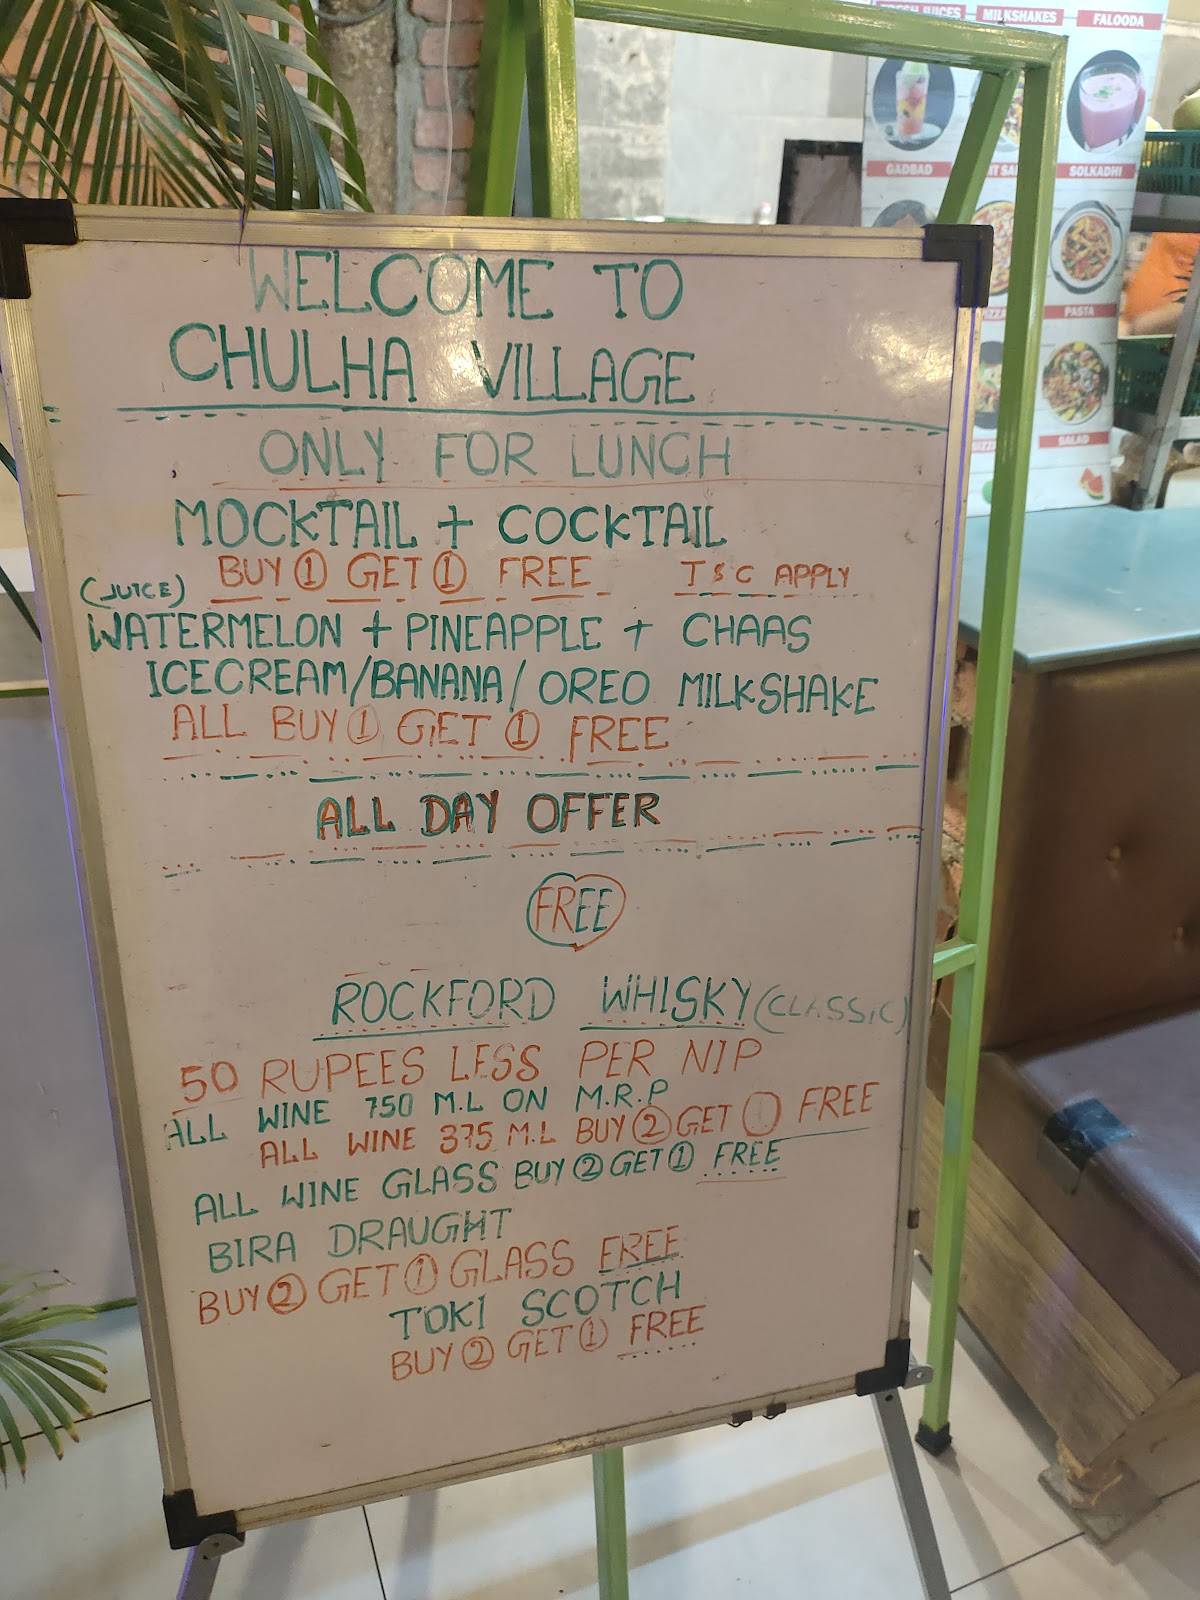 FRESH JUICES
MILKSHAKES
FALOODA
GADBAD
SOLKADHI
PASTA
SALAD
WELCOME TO
CHULHA VILLAGE
ONLY FOR LUNCH
MOCKTAIL + COCKTAIL
BUY 1 GET 1 FREE T & C APPLY
(JUICE)
WATERMELON + PINEAPPLE + CHAAS
ICECREAM/BANANA/OREO MILKSHAKE
ALL BUY 1 GET 1 FREE
ALL DAY OFFER
FREE
ROCKFORD WHISKY (CLASSIC)
50 RUPEES LESS PER NIP
ALL WINE 750 M.L ON M.R.P
ALL WINE 375 M.L BUY 2 GET 1 FREE
ALL WINE GLASS BUY 2 GET 1 FREE
BIRA DRAUGHT
BUY 2 GET 1 GLASS FREE
TOKI SCOTCH
BUY 2 GET 1 FREE